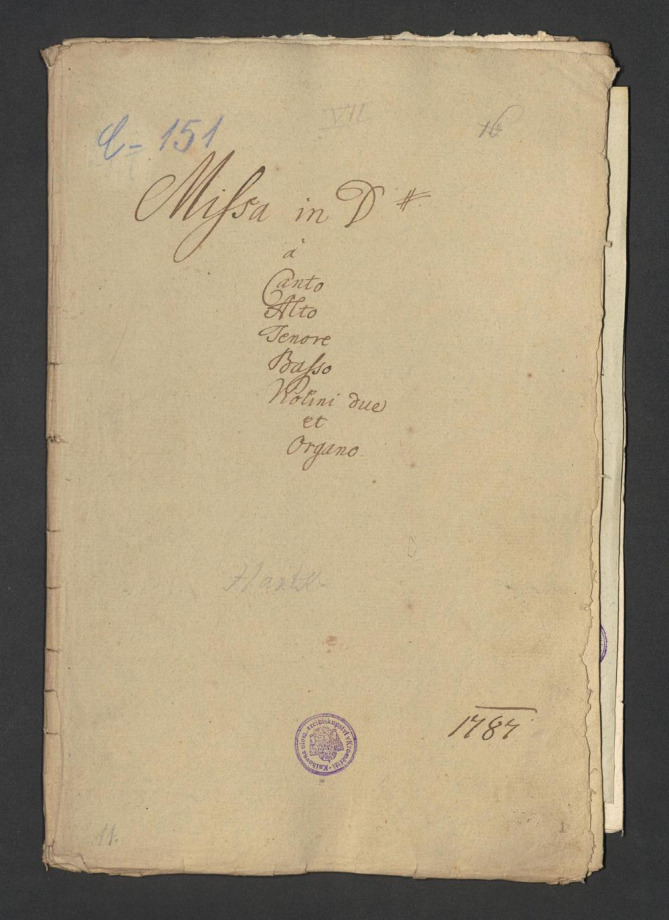 VII
16
C- 151
Missa in D #
à
Canto
Alto
Tenore
Basso
Violini due
et
Organo
1787
11.